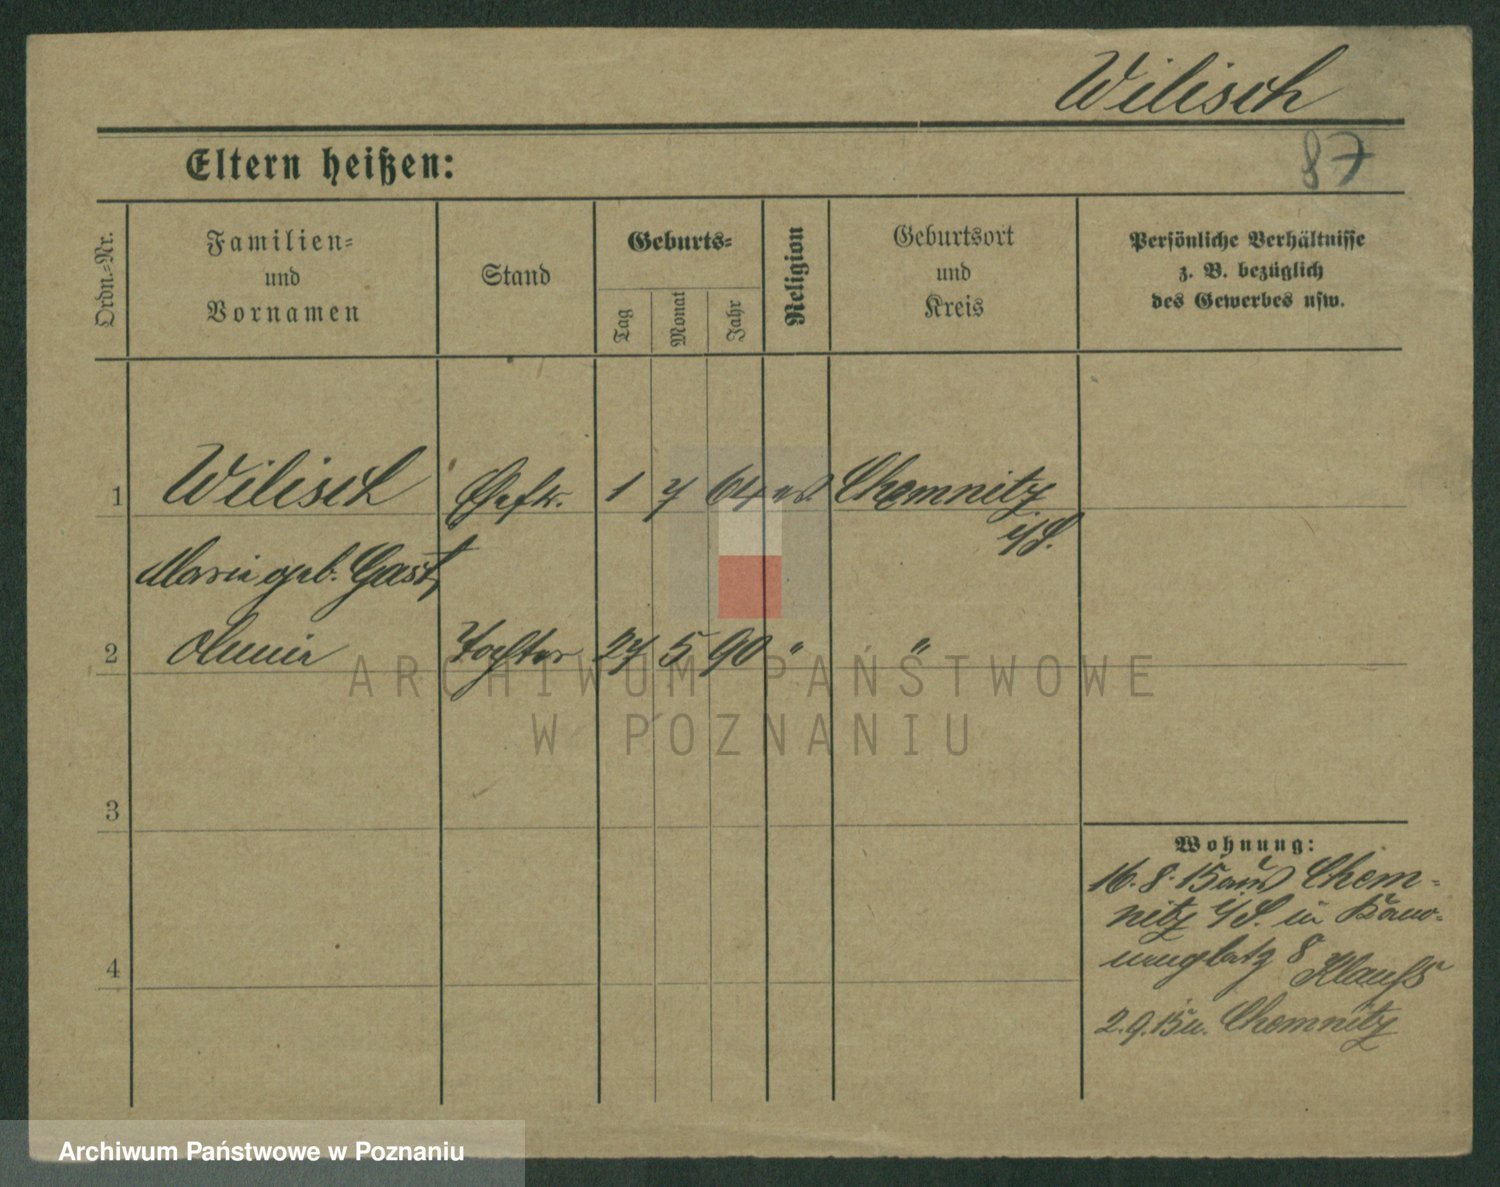 Wilisch
87
Eltern heißen:
Ordn.-Nr.
Familien-
und
Vornamen
Stand
Geburts-
Tag
Monat
Jahr
Religion
Geburtsort
und
Kreis
Persönliche Verhältnisse
z. B. bezüglich
des Gewerbes usw.
1 Wilisch Ehefr. 1 7 64 ev. Chemnitz
i/S.
Marie geb. Gast,
2 Tochter 27 5 90 " "
ARCHIWUM PAŃSTWOWE
W POZNANIU
3
4
Wohnung:
16. 8. 15 aus Chem-
nitz i/S. in
8
2. 9. 15 n. Chemnitz
Archiwum Państwowe w Poznaniu